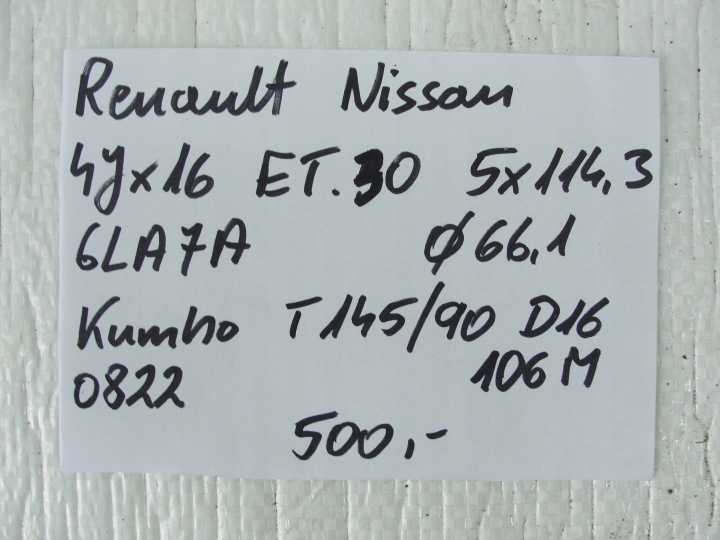 Renault Nissan
4Jx16 ET.30 5x114,3
6LA7A Ø66,1
Kumho T145/90 D16
0822 106M
500,-